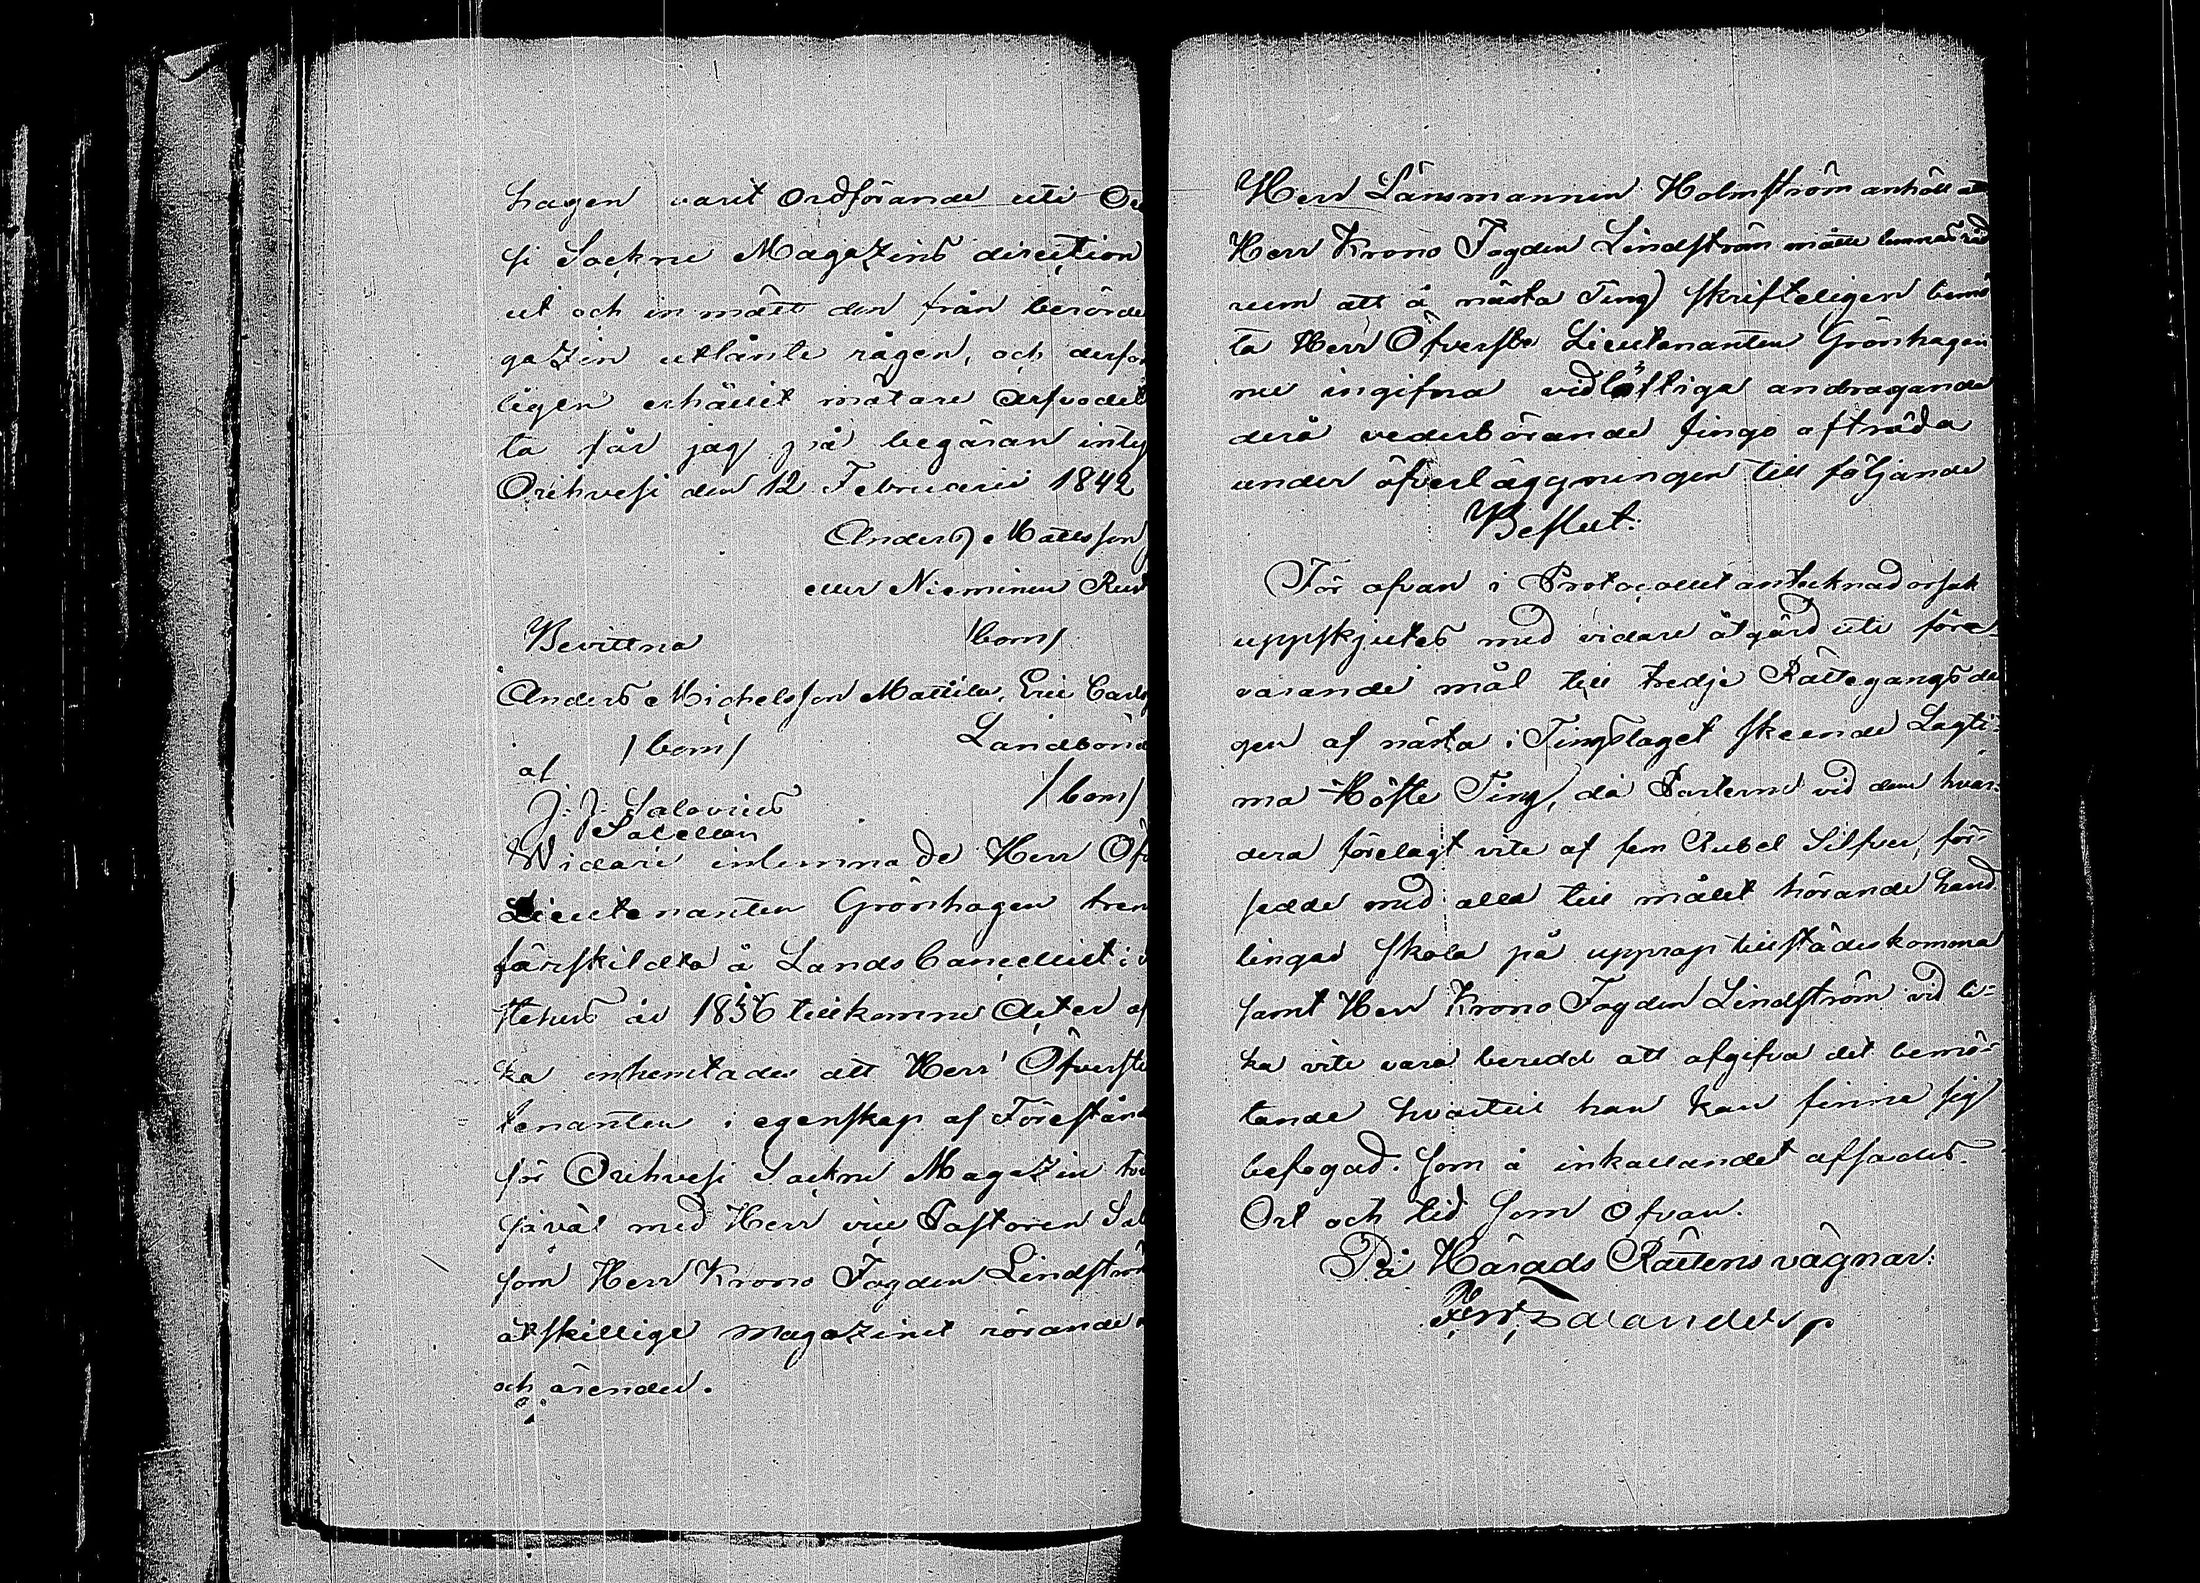 hagen varit Ordförande uti Ori
si Sockne Magazins direction
ut och in mätt den från berörde
gazin utlånte rågen, och derfor
ligen erhållit mätare Arfvodet
ta får jag på begäran intyg
Orihvesi den 12 Februarii 1842
Anders Mattsson
eller Nieminen Rust
Bevittna /bom/
Anders Michelsson Mattila, Eric Carls
/bom/ Landbonde
af /bom/
J. J. Salovius
Sacellan
Widare inlemnade Herr Öfv
Lieutenanten Grönhagen tren
särskildta å Lands Cancelliet i
stehus år 1836 tillkomne Acter af
ka inhemtades att Herr Öfverste
tenanten i egenskap af Förestånd
för Orihvesi Sockne Magazin
såväl med Herr vice Pastoren Sal
som Herr Krono Fogden Lindström
åtskillige Magazinet rörande
och ärenden.
Herr Länsmannen Holmström anhöll att
Herr Krono Fogden Lindström måtte lemnas råd
rum att å nästa Ting skrifteligen bemö
ta Herr Öfverste Lieutenanten Grönhagens
nu ingifna vidlöftiga andragande
derå vederbörande fingo afträda
under öfverläggningen till följande
Beslut:
För ofvan i Protocollet antecknad orsak
uppskjutes med vidare åtgärd uti före-
varande mål till tredje Rättegångs da
gen af nästa i Tingslaget skeende Lagti-
ma Höste Ting, då Parterne vid dem hvar-
dera förelagt vite af fem Rubel Silfver, för-
sedde med alla till målet hörande hand
lingar skola på upprop tillstädeskomma
samt Herr Krono Fogden Lindström vid li-
ka vite vara beredd att afgifva det bemö-
tande hvartill han kan finna sig
befogad. Som å inkallandet afsades.
Ort och tid som ofvan.
På Härads Rättens vägnar: